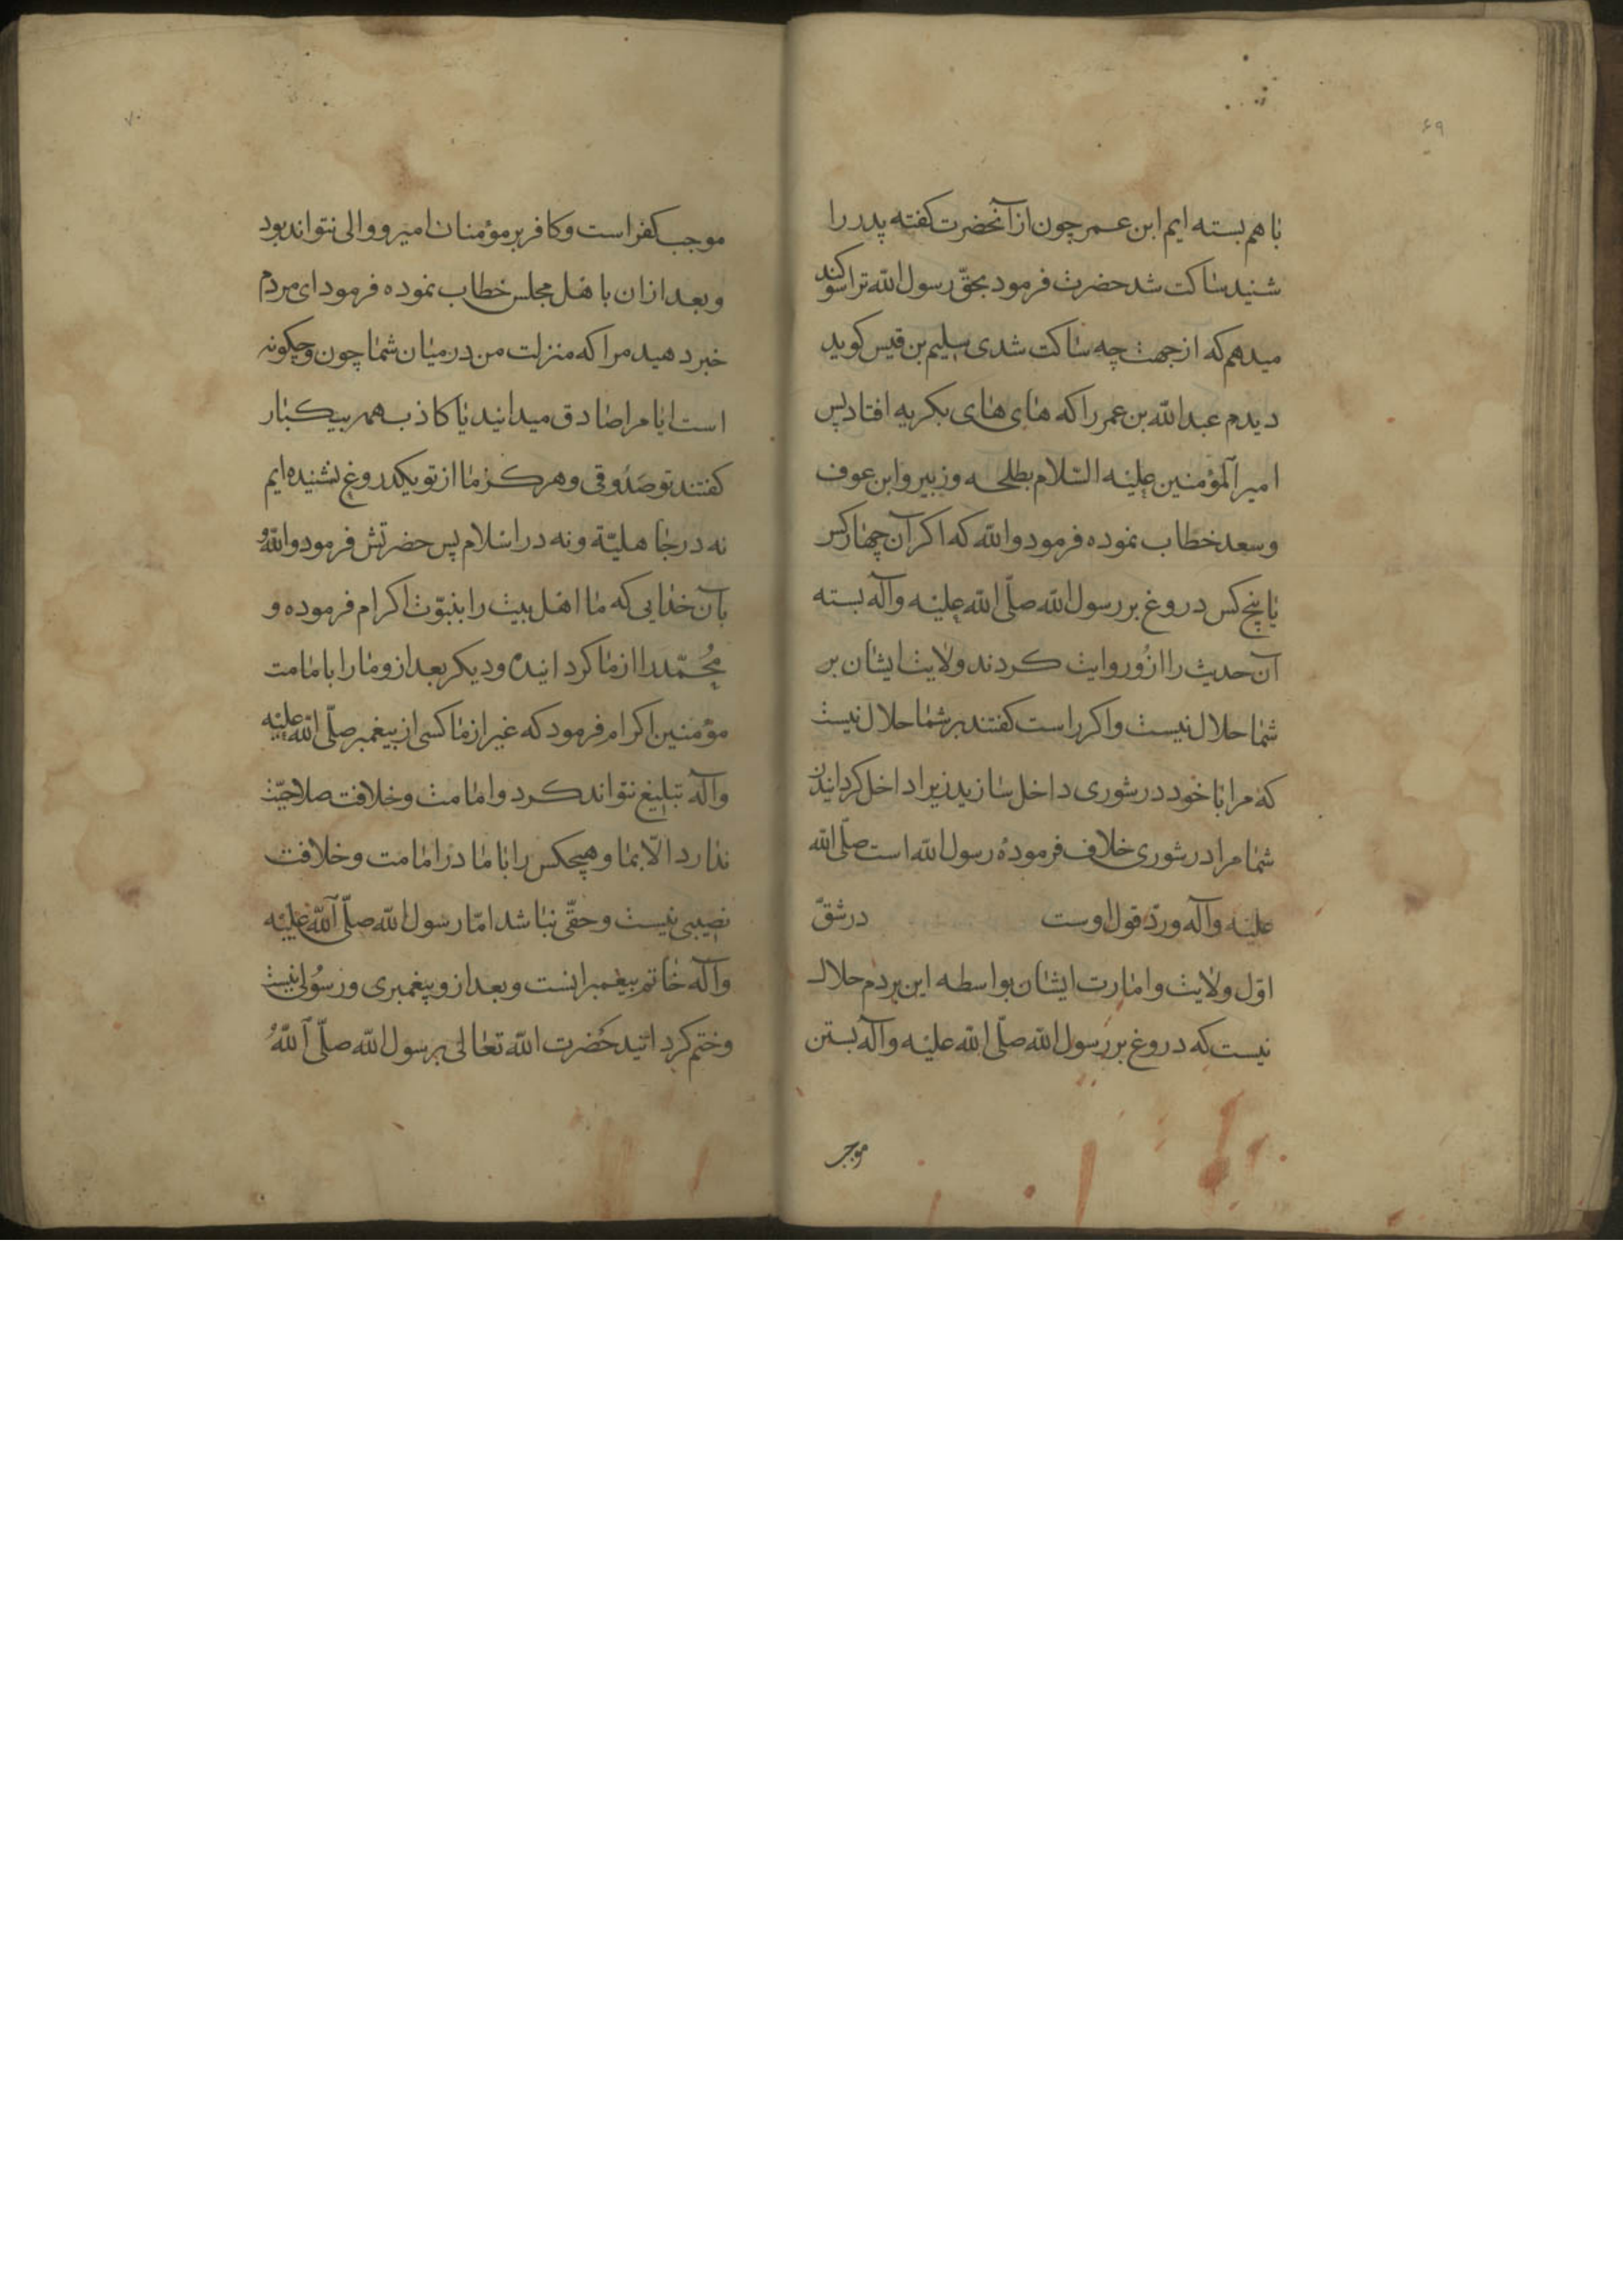 ۶۹
باهم بسته ایم ابن عمر چون از آنحضرت کفته پدر را
شنید ساکت شد حضرت فرمود بحقّ رسول الله ترا سوکند
میدهم که از جهت چه ساکت شدی سلیم بن قیس کوید
دیدم عبدالله بن عمر را که های های بکریه افتاد پس
امیر المؤمنین علیه السّلام بطلحه و زبیر و ابن عوف
و سعد خطاب نموده فرمود والله که اکر آن چهار کس
یا پنج کس دروغ بر رسول الله صلّی الله علیه وآله بسته
آن حدیث را ازو روایت کردند ولایت ایشان بر
شما حلال نیست و اکر راست کفتند بر شما حلال نیست
که مرا با خود در شوری داخل سازید زیرا داخل کردانیدن
شما مرا در شوری خلاف فرموده رسول الله است صلّی الله
علیه وآله وردّ قول اوست در شقّ
اوّل ولایت و امارت ایشان بواسطه این بردم حلال
نیست که دروغ بر رسول الله صلّی الله علیه وآله بستن
موجب
۷۰
موجب کفر است و کافر بر مؤمنان امیر و والی نتواند بود
و بعد ازان با اهل مجلس خطاب نموده فرمود ای مردم
خبر دهید مرا که منزلت من در میان شما چون و چکونه
است ایا مرا صادق میدانید یا کاذب همه بیکبار
کفتند تو صَدُوقی و هرکز ما از تو یکدروغ نشنیده ایم
نه در جاهلیّة و نه در اسلام پس حضرتش فرمود واللهُ
بآن خدایی که ما اهل بیت را بنبوّت اکرام فرموده و
مُحَمّد را از ما کردانیده و دیکر بعد ازو ما را بامامت
مؤمنین اکرام فرمود که غیر از ما کسی از پیغمبر صلّی الله علیه
وآله تبلیغ نتواند کرد و امامت و خلافت صلاحیّت
ندارد الّا بما و هیچکس را با ما در امامت و خلافت
نصیبی نیست و حقّی نباشد امّا رسول الله صلّی الله علیه
وآله خاتم پیغمبرانست و بعد ازو پیغمبری و رسُولی نیست
و ختم کردانید حَضرت الله تعالی برسول الله صلّی اللهُ